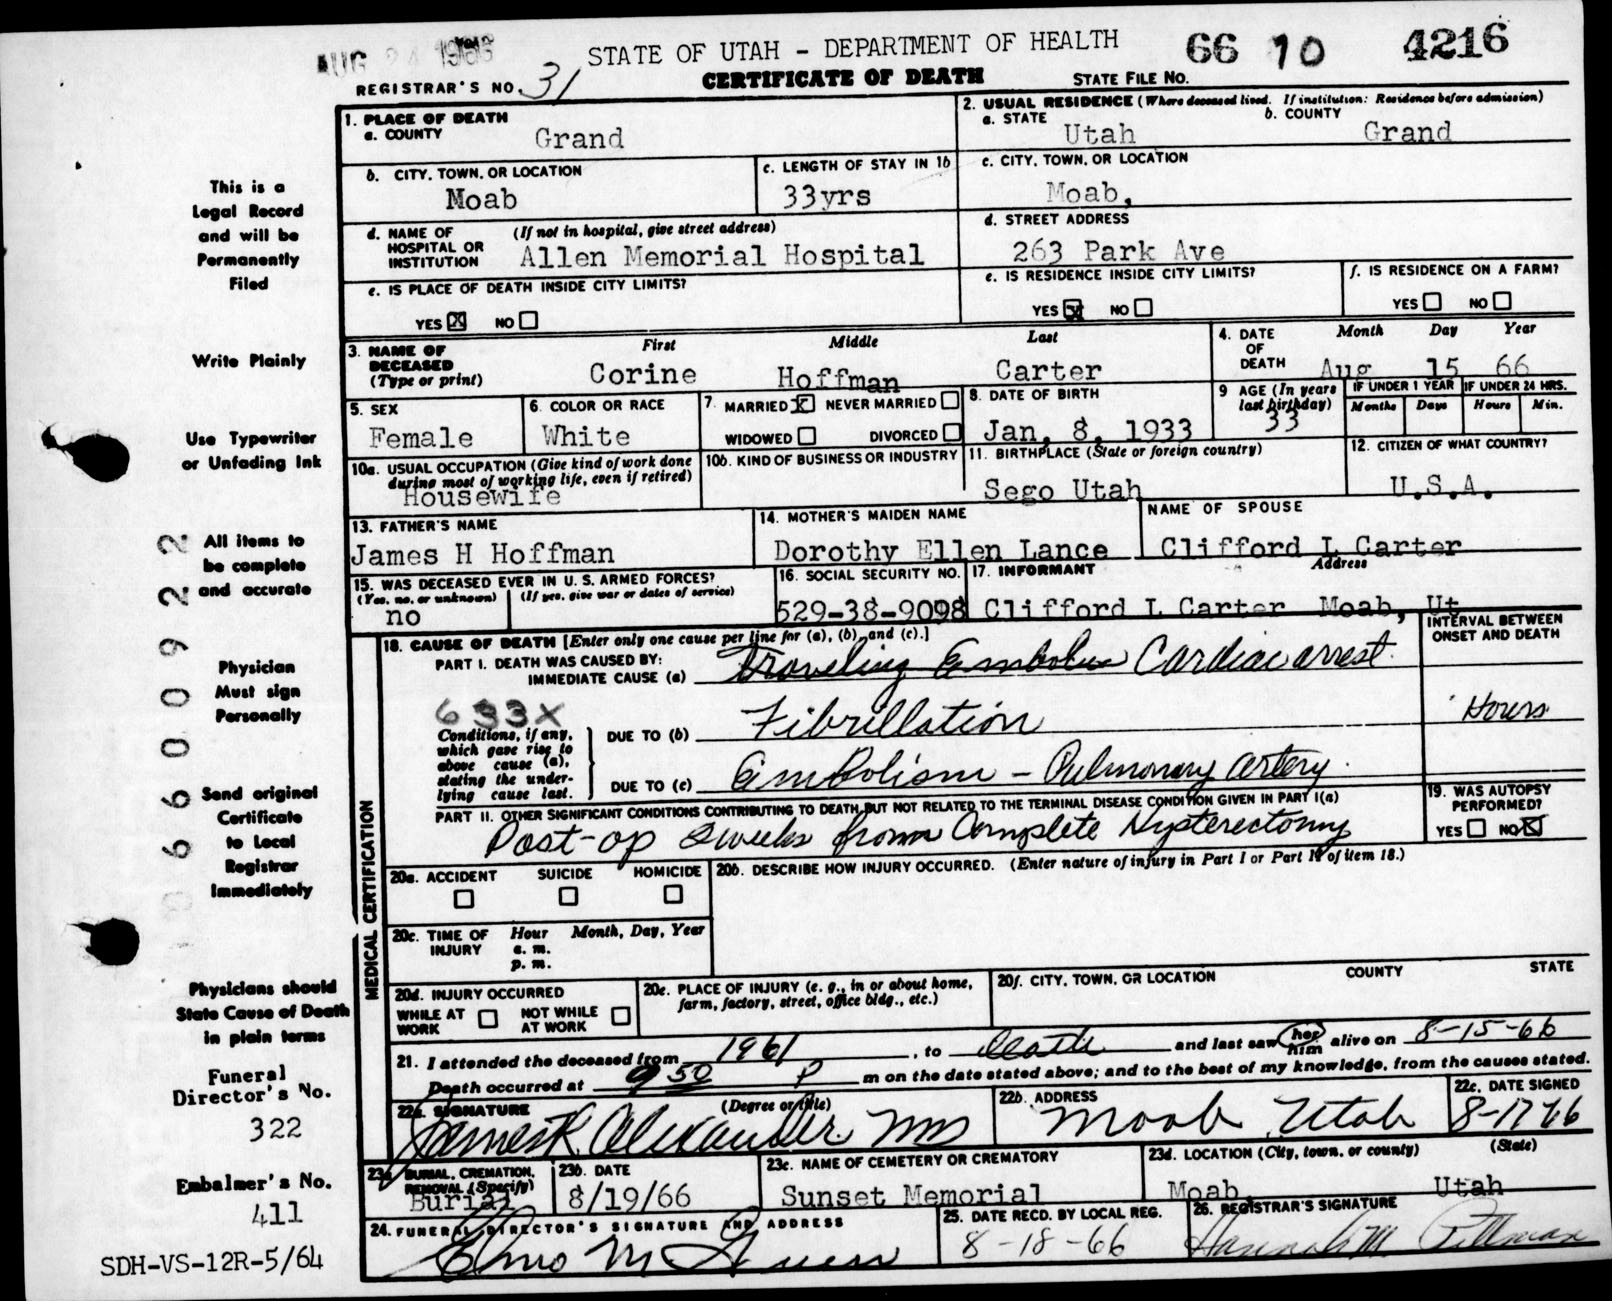 AUG 24 1966
STATE OF UTAH - DEPARTMENT OF HEALTH 66 10 4216
REGISTRAR'S NO. 31 CERTIFICATE OF DEATH STATE FILE NO.
1. PLACE OF DEATH
a. COUNTY Grand
2. USUAL RESIDENCE (Where deceased lived. If institution: Residence before admission)
a. STATE Utah b. COUNTY Grand
b. CITY, TOWN, OR LOCATION Moab
c. LENGTH OF STAY IN 1b 33yrs
c. CITY, TOWN, OR LOCATION Moab,
d. NAME OF HOSPITAL OR INSTITUTION (If not in hospital, give street address) Allen Memorial Hospital
d. STREET ADDRESS 263 Park Ave
e. IS PLACE OF DEATH INSIDE CITY LIMITS?
YES X NO
e. IS RESIDENCE INSIDE CITY LIMITS?
YES X NO
f. IS RESIDENCE ON A FARM?
YES NO
3. NAME OF DECEASED (Type or print)
First Middle Last
Corine Hoffman Carter
4. DATE OF DEATH Month Day Year
Aug 15 66
5. SEX Female
6. COLOR OR RACE White
7. MARRIED X NEVER MARRIED
WIDOWED DIVORCED
8. DATE OF BIRTH Jan, 8, 1933
9 AGE (In years last birthday) 33
IF UNDER 1 YEAR IF UNDER 24 HRS.
Months Days Hours Min.
10a. USUAL OCCUPATION (Give kind of work done during most of working life, even if retired)
Housewife
10b. KIND OF BUSINESS OR INDUSTRY
11. BIRTHPLACE (State or foreign country)
Sego Utah
12. CITIZEN OF WHAT COUNTRY?
U.S.A.
13. FATHER'S NAME
James H Hoffman
14. MOTHER'S MAIDEN NAME
Dorothy Ellen Lance
NAME OF SPOUSE
Clifford L Carter
15. WAS DECEASED EVER IN U. S. ARMED FORCES?
(Yes, no, or unknown) (If yes, give war or dates of service)
no
16. SOCIAL SECURITY NO.
529-38-9098
17. INFORMANT Address
Clifford L Carter Moab, Ut
18. CAUSE OF DEATH [Enter only one cause per line for (a), (b), and (c).]
INTERVAL BETWEEN ONSET AND DEATH
PART I. DEATH WAS CAUSED BY:
IMMEDIATE CAUSE (a) Traveling Embolus Cardiac arrest.
633X
Conditions, if any, which gave rise to above cause (a), stating the underlying cause last.
DUE TO (b) Fibrillation Hours
DUE TO (c) Embolism - Pulmonary artery.
PART II. OTHER SIGNIFICANT CONDITIONS CONTRIBUTING TO DEATH BUT NOT RELATED TO THE TERMINAL DISEASE CONDITION GIVEN IN PART I(a)
Post-op 2 weeks from Complete Hysterectomy
19. WAS AUTOPSY PERFORMED?
YES NO X
MEDICAL CERTIFICATION
20a. ACCIDENT SUICIDE HOMICIDE
20b. DESCRIBE HOW INJURY OCCURRED. (Enter nature of injury in Part I or Part II of item 18.)
20c. TIME OF INJURY Hour Month, Day, Year
a. m.
p. m.
20d. INJURY OCCURRED
WHILE AT WORK NOT WHILE AT WORK
20e. PLACE OF INJURY (e. g., in or about home, farm, factory, street, office bldg., etc.)
20f. CITY, TOWN, OR LOCATION COUNTY STATE
21. I attended the deceased from 1961, to death and last saw her him alive on 8-15-66
Death occurred at 9 50 P m on the date stated above; and to the best of my knowledge, from the causes stated.
22a. SIGNATURE (Degree or title)
James R. Alexander MD
22b. ADDRESS
Moab Utah
22c. DATE SIGNED
8-17-66
23a BURIAL, CREMATION, REMOVAL (Specify)
Burial
23b. DATE
8/19/66
23c. NAME OF CEMETERY OR CREMATORY
Sunset Memorial
23d. LOCATION (City, town, or county) (State)
Moab Utah
24. FUNERAL DIRECTOR'S SIGNATURE AND ADDRESS
25. DATE RECD. BY LOCAL REG.
8-18-66
26. REGISTRAR'S SIGNATURE
Hannah M Pittman
This is a
Legal Record
and will be
Permanently
Filed
Write Plainly
Use Typewriter
or Unfading Ink
All items to
be complete
and accurate
Physician
Must sign
Personally
Send original
Certificate
to Local
Registrar
Immediately
Physicians should
State Cause of Death
in plain terms
Funeral
Director's No.
322
Embalmer's No.
411
SDH-VS-12R-5/64